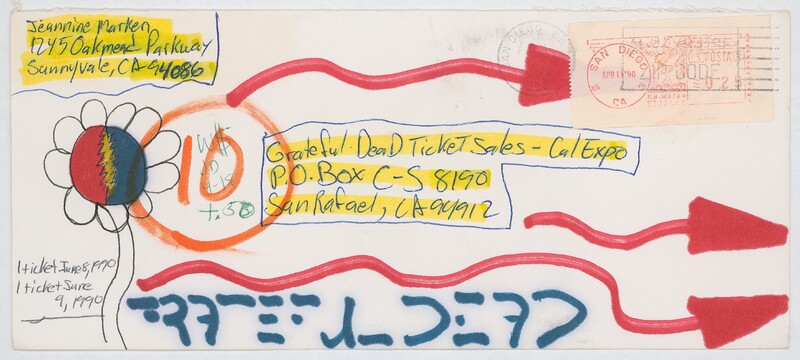 Jeannine Marken
1245 Oakmead Parkway
Sunnyvale, CA 94086
SAN DIEGO
SAN DIEGO
APR 11 '90
CA
ZIP CODE
U.S. POSTAGE
10
+.50
Grateful Dead Ticket Sales - Cal Expo
P.O. Box C-S 8190
San Rafael, CA 94912
1 ticket June 8, 1990
1 ticket June
9, 1990
GRATEFUL DEAD